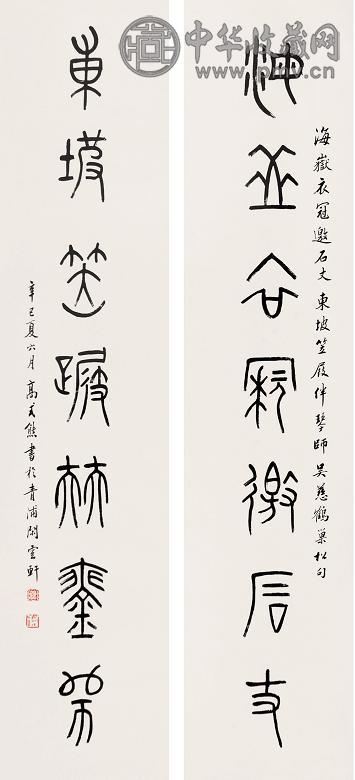 中华收藏网
www.pmv.cn
海嶽衣冠邀石丈 東坡笠屐伴琴師 吴慈鶴巢松句
海嶽衣冠邀石丈
東坡笠屐伴琴師
辛巳夏六月 高式熊書於青浦閒雲軒